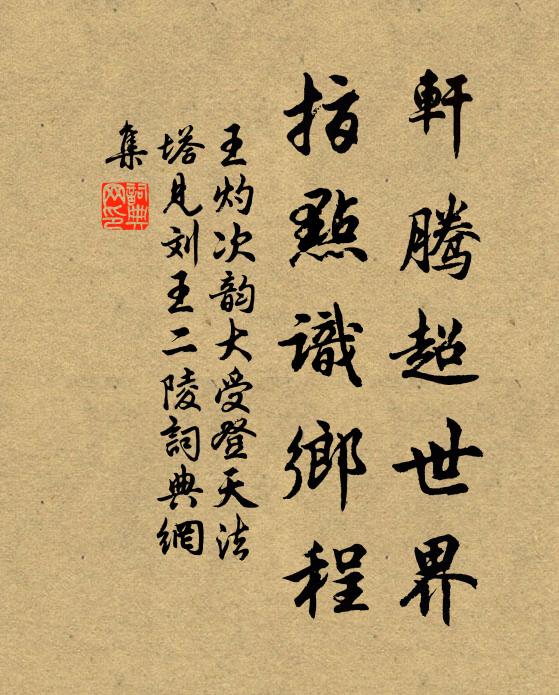 軒騰超世界
指點識鄉程
王灼次韵大受登天法
塔見刘王二陵詞典網
集
詞典
网印